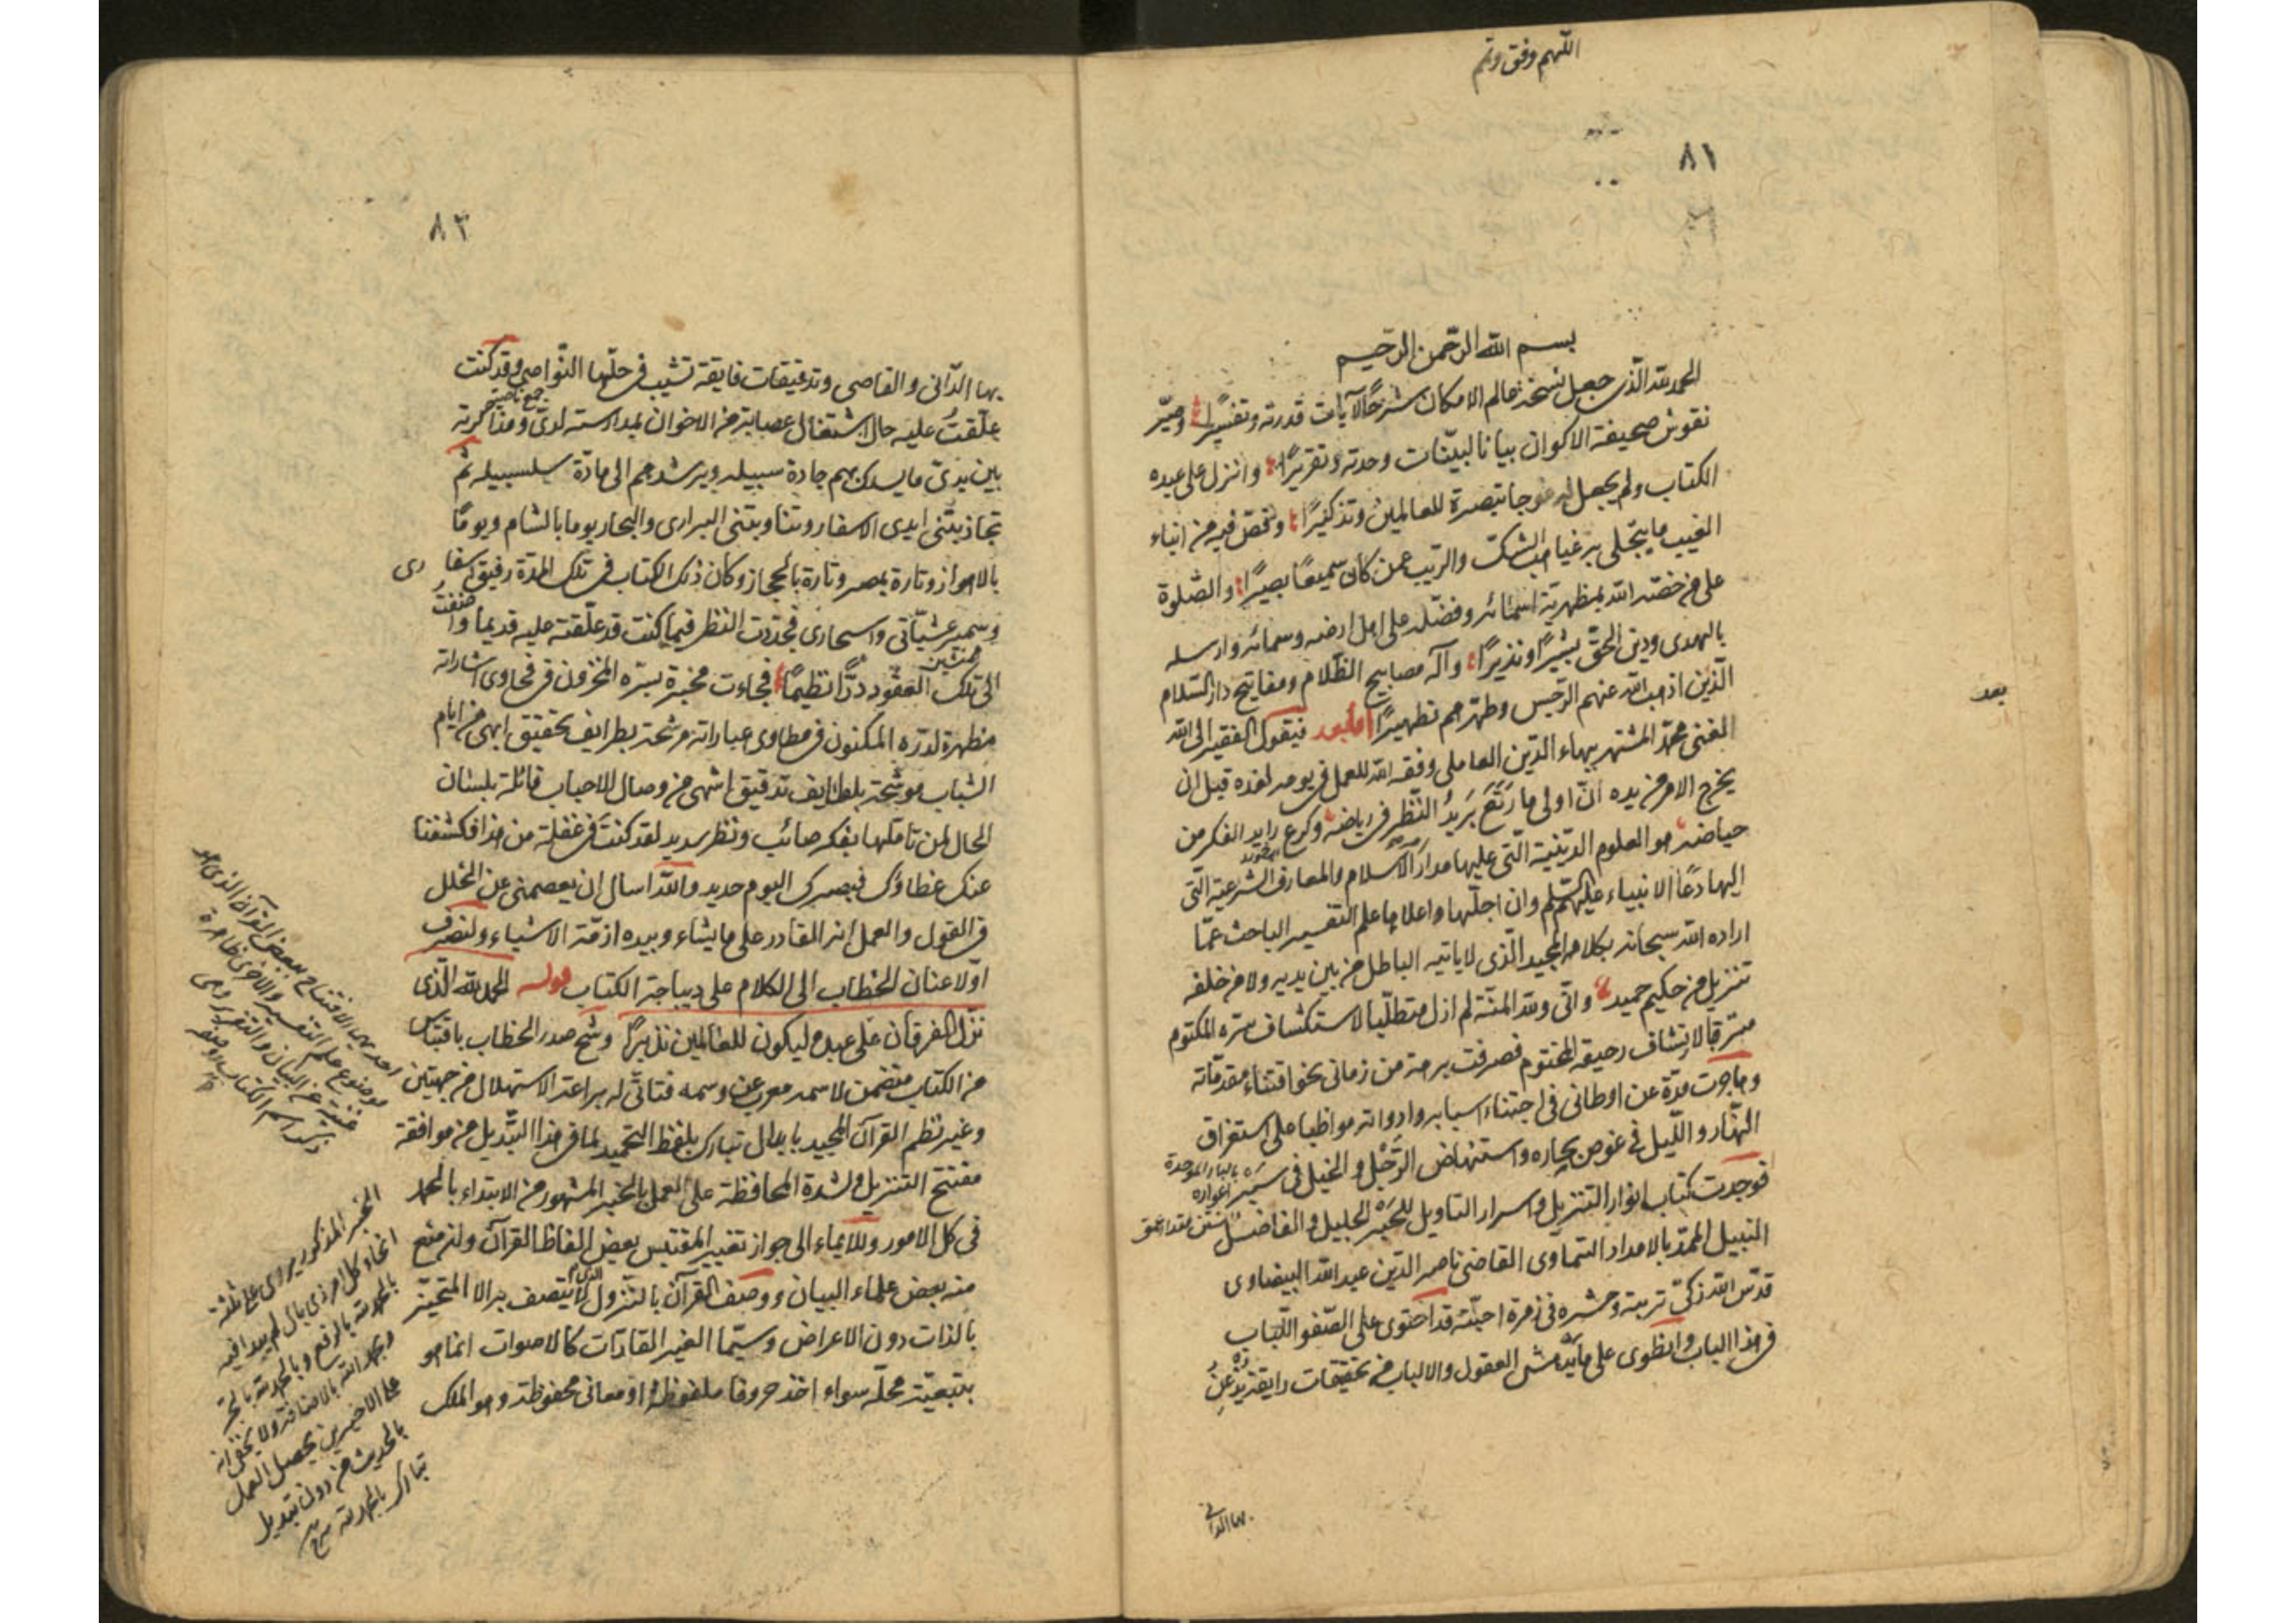 اللهم وفق وتمم
٨١
بسم الله الرّحمن الرّحيم
الحمد لله الّذى جعل نسخة عالم الامكان شرحًا لآيات قدرته وتفسيرًا وصيّر
نقوش صحيفة الاكوان بيانا لبيّنات وحدته وتقريرًا وانزل على عبده
الكتاب ولم يجعل له عوجا تبصرة للعالمين وتذكيرًا وقص فيه من انباء
الغيب ما ينجلى به غياهب الشكّ والريب عمن كان سميعًا بصيرًا والصّلوة
على من خصّه الله بمظهرية اسمائه وفضّله على اهل ارضه وسمائه وارسله
بالهدى ودين الحقّ بشيرًا ونذيرًا وآله مصابيح الظّلام ومفاتيح دار السّلام
الّذين اذهب الله عنهم الرّجس وطهّرهم تطهيرًا اما بعد فيقول الفقير الى الله
الغنى محمّد المشتهر ببهاء الدّين العاملى وفقه الله للعمل فى يومه لغده قبل ان
يخرج الامر من يده انّ اولى ما رَتَعَ بَريدُ النّظر فى رياضه وكرع رايد الفكر من
حياضه هو العلوم الدّينيّة الّتى عليها مدار الاسلام والمعارف الشرعية الّتى
اليها دعا الانبياء عليهم السّلم وان اجلّها واعلاها علم التفسير الباحث عمّا
اراده الله سبحانه بكلامه المجيد الّذى لا ياتيه الباطل من بين يديه ولا من خلفه
تنزيل من حكيم حميد وانّى ولله المنّة لم ازل متطلّبا لاستكشاف سرّه المكتوم
مترقبا لارتشاف رحيقه المختوم فصرفت برهة من زمانى نحو اقتناء مقدّماته
وهاجرت مدّة عن اوطانى فى اجتناء اسبابه وادواته مواظبا على استغراق
النّهار واللّيل فى غوص بحاره واستنهاض الرَّجْل والخيل فى سَبر اغواره
بالباء الموحدة
فوجدت كتاب انوار التنزيل واسرار التاويل للحَبر الجليل والفاضل
النبيل الممدّ بالامداد السّماوى القاضى ناصر الدّين عبد الله البيضاوى
قدّس الله زكىّ تربته وحشره فى زمرة احبّته قد احتوى على الصّفو اللّباب
فى هذا الباب وانطوى على ما يدهش العقول والالباب من تحقيقات رايقة يذعن
بها الدانى
بعد
٨٣
بها الدّانى والقاصى وتدقيقات فايقة تشيب فى حلّها النّواصى وقد كنت
جمع ناصية
علّقتُ عليه حال اشتغال عصابة من الاخوان بمدارسته لدىّ ومذاكرته
بين يدىّ ما يسلك بهم جادة سبيله ويرشدهم الى مادّة سلسبيله ثم
تجاذبتنى ايدى الاسفار وتناوبتنى البرارى والبحار يوما بالشام ويومًا
بالاهواز وتارة بمصر وتارة بالحجاز وكان ذلك الكتاب فى تلك المدّة رفيق اسفارى
وسمير عشيّاتى واسحارى فجدّدت النظر فيما كنت قد علّقته عليه قديما واضفت
الى تلك العقود درًّا نظيمًا فجاءت مخبرة بسرّه المخزون فى فحاوى اشاراته
مظهرة لدرّه المكنون فى مطاوى عباراته مرشحة بطرايف تحقيق ابهى من ايام
الشباب موشّحة بلطايف تدقيق اشهى من وصال الاحباب قائلة بلسان
الحال لمن تامّلها بفكر صائب ونظر سديد لقد كنتَ فى غفلة من هذا فكشفنا
عنك غطاؤك فبصرك اليوم حديد والله اسال ان يعصمنى عن الخلل
فى القول والعمل انه القادر على ما يشاء وبيده ازمّة الاشياء ولنصرف
اوّلا عنان الخطاب الى الكلام على ديباجة الكتاب قوله الحمد لله الّذى
نزّل الفرقان على عبده ليكون للعالمين نذيرًا وشح صدر الخطاب باقتباس
من الكتاب متضمن لاسمه معرب عن وسمه فتاتّى له براعة الاستهلال من جهتين
وغير نظم القرآن المجيد بابدال تبارك بلفظ التحميد لما فى هذا التبديل من موافقة
مفتتح التنزيل ولشدة المحافظة على العمل بالخبر المشهور من الابتداء بالحمد
فى كل الامور وللايماء الى جواز تغيير المقتبس بعض الفاظ القرآن وان منع
منه بعض علماء البيان ووصف القرآن بالنّزول الذى لا يتصف به الا المتحيّز
بالذات دون الاعراض وسيّما الغير القارّات كالاصوات انما هو
بتبعيّة محلّه سواء اخذ حروفا ملفوظة او معانى محفوظة وهو الملك
احديهما الافتتاح ببعض القرآن الذى هو
موضوع علم التفسير والاخرى ظاهرة
غنية عن البيان والتقرير وهى
ذكر اسم الكتاب
الخبر المذكور يروى على ثلثة
انحاء كل امر ذى بال لم يبدا فيه
بالحمد لله بالرفع وبالحمد لله بالجرّ
وبحمد الله بالاضافة ولا يخفى انه
على الاخيرين يحصل العمل
بالحديث من دون تبديل
تبارك بالحمد لله